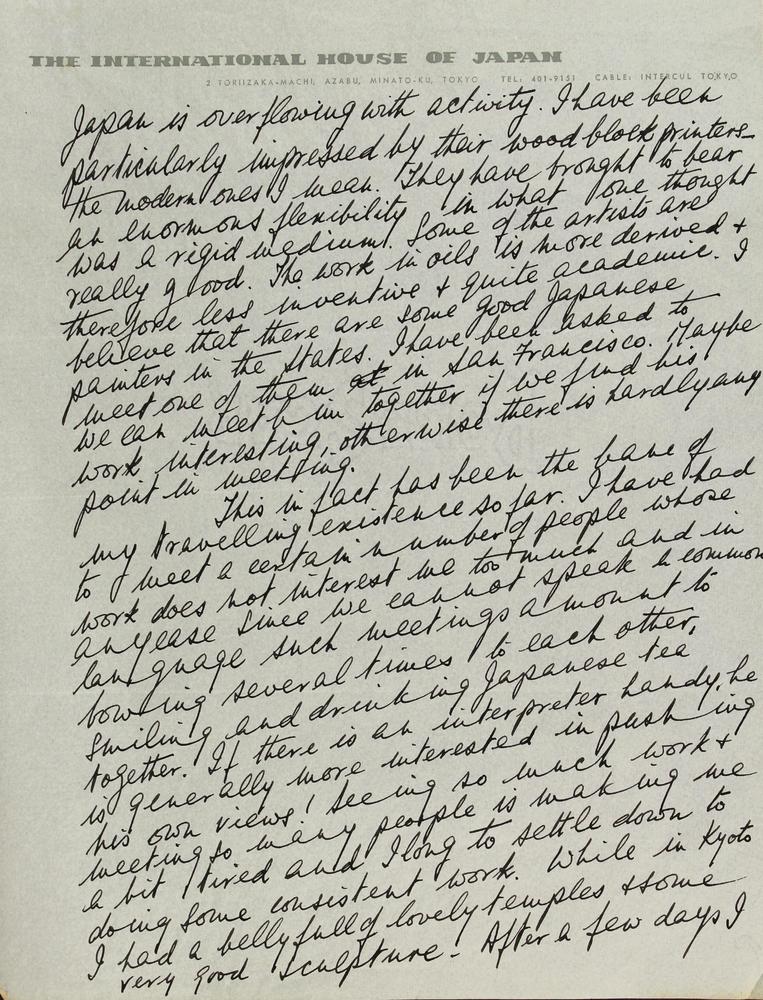 THE INTERNATIONAL HOUSE OF JAPAN
2 TORIIZAKA-MACHI, AZABU, MINATO-KU, TOKYO TEL: 401-9151 CABLE: INTERCUL TOKYO
Japan is overflowing with activity. I have been
particularly impressed by their wood block printers -
the modern ones I mean. They have brought to bear
an enormous flexibility in what one thought
was a rigid medium. Some of the artists are
really good. The work in oils is more derived +
therefore less inventive + quite academic. I
believe that there are some good Japanese
painters in the States. I have been asked to
meet one of them in San Francisco. Maybe
we can meet him together if we find his
work interesting, otherwise there is hardly any
point in meeting.
This in fact has been the bane of
my travelling existence so far. I have had
to meet a certain number of people whose
work does not interest me too much and in
any case since we cannot speak a common
language such meetings amount to
bowing several times to each other,
smiling and drinking Japanese tea
together. If there is an interpreter handy, he
is generally more interested in pushing
his own views! Seeing so much work +
meeting so many people is making me
a bit tired and I long to settle down to
doing some consistent work. While in Kyoto
I had a bellyfull of lovely temples + some
very good sculpture - After a few days I